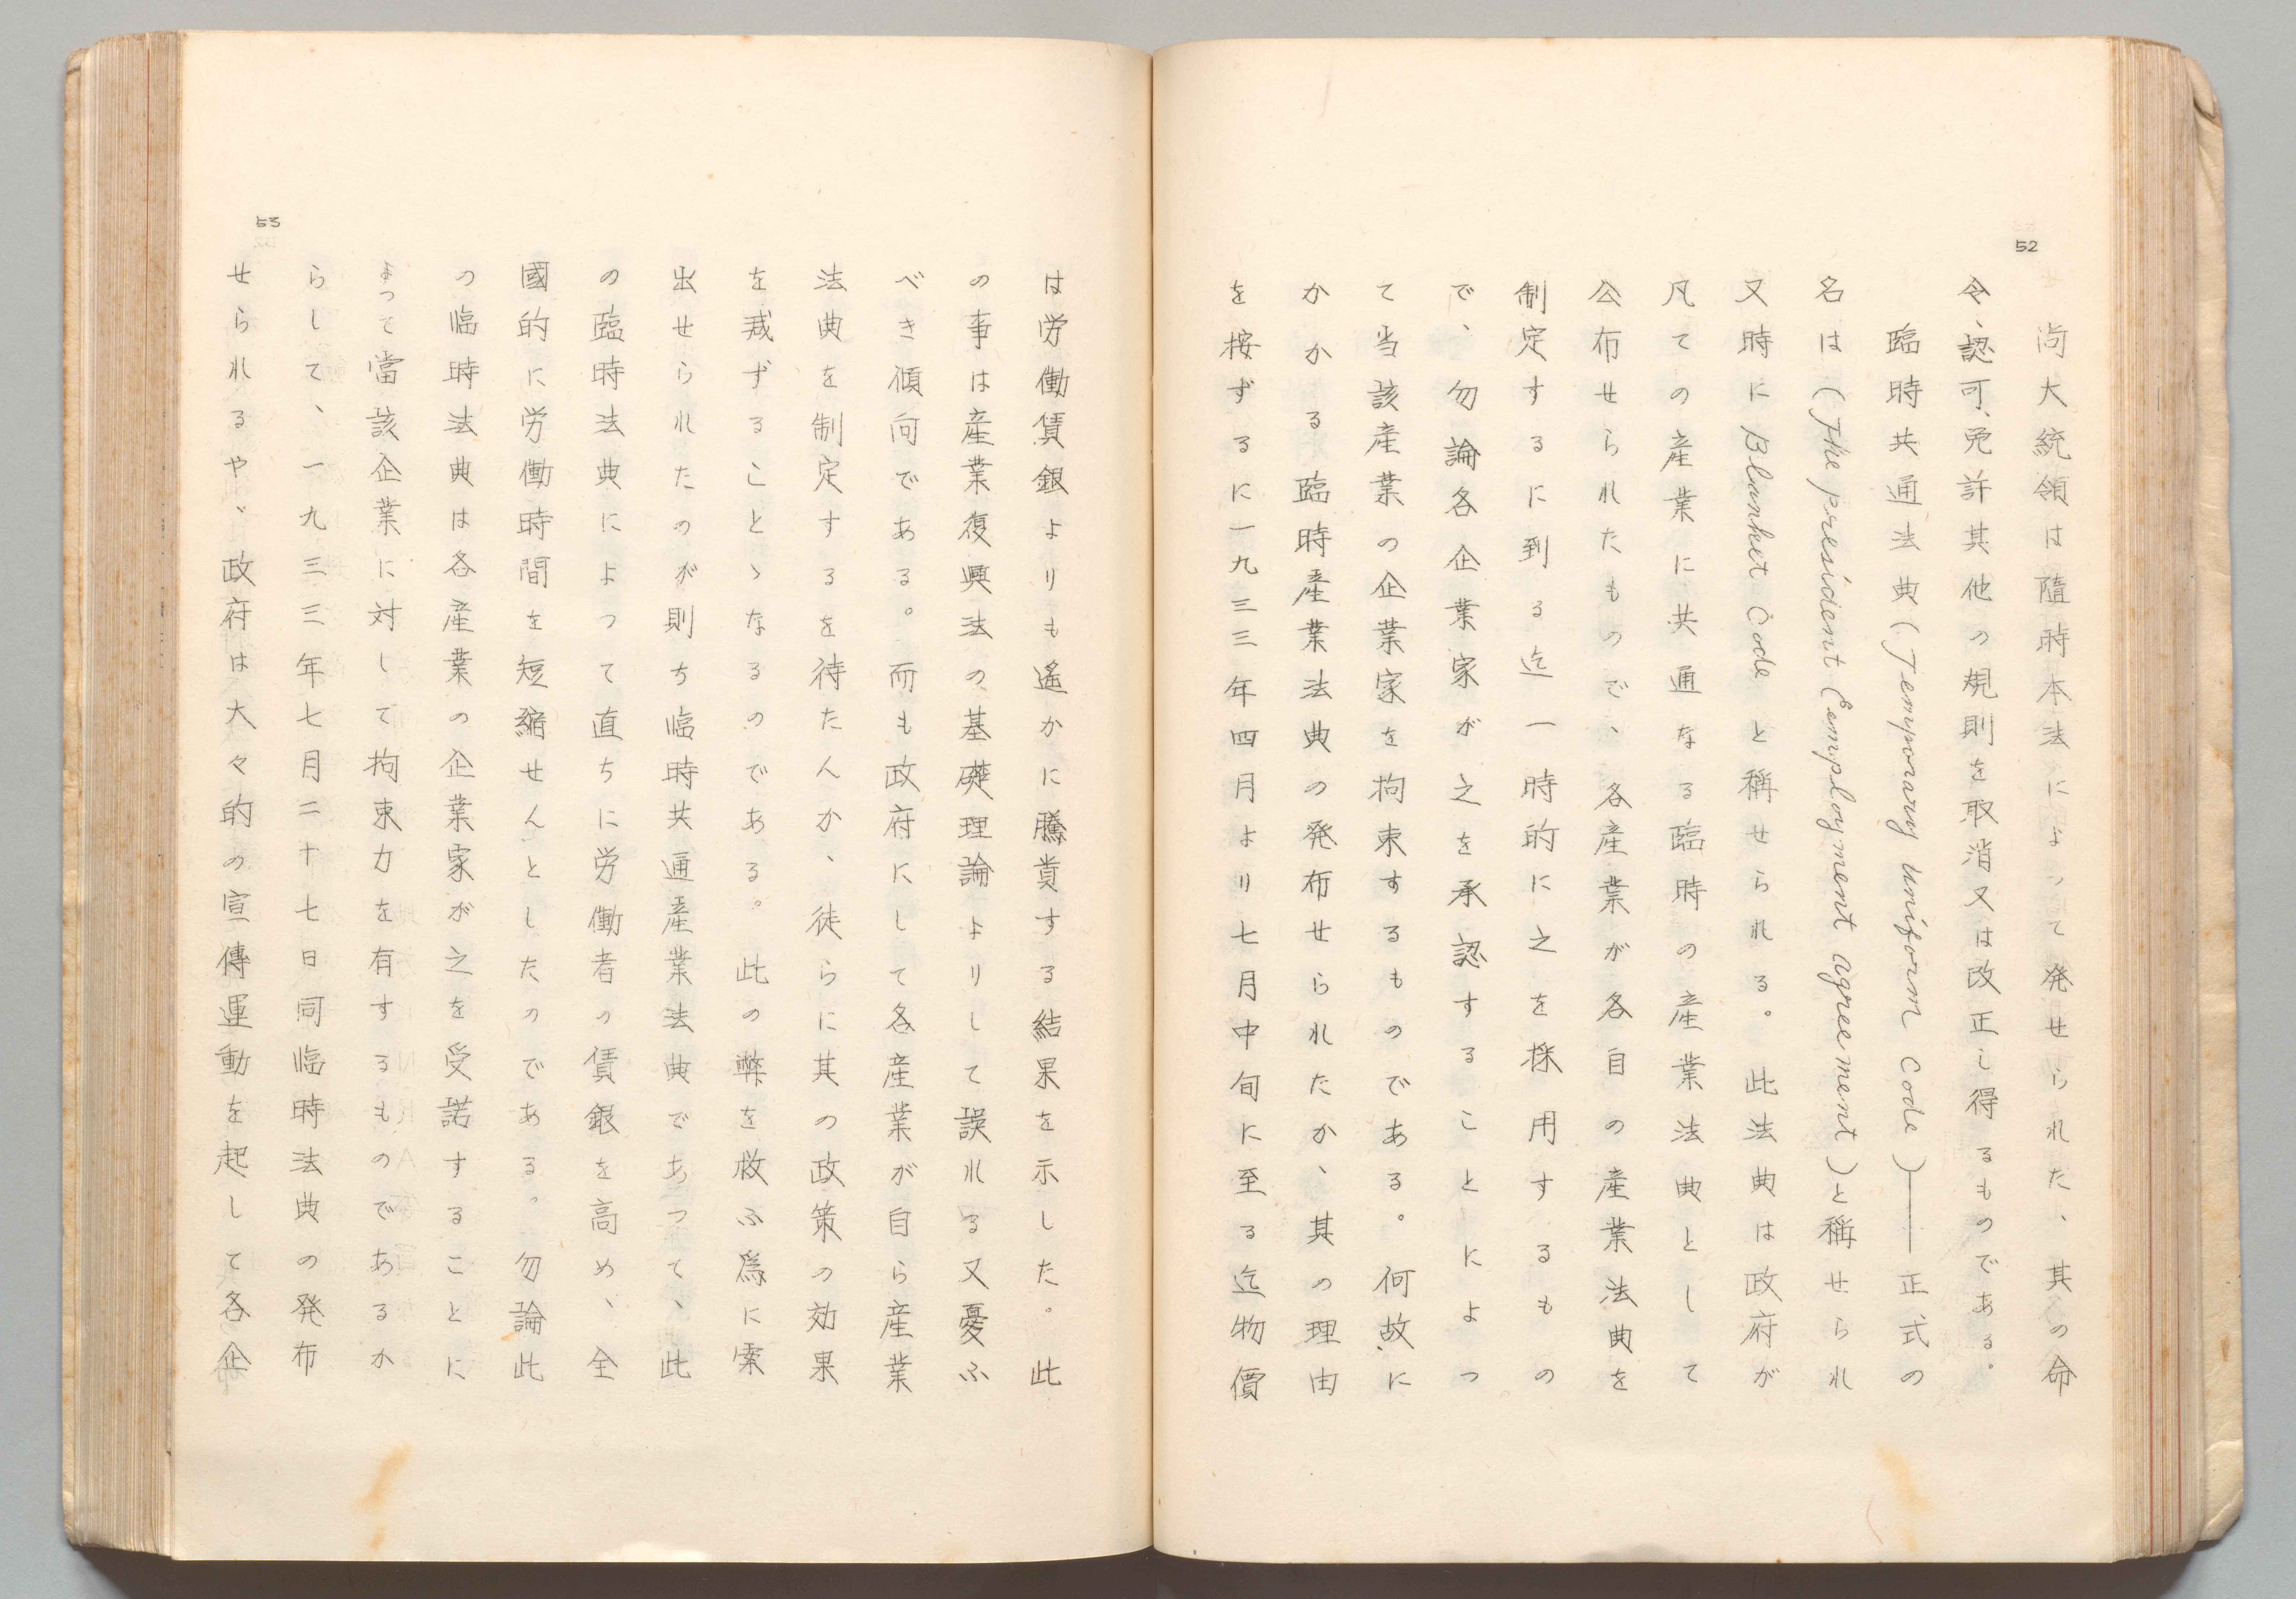 52
尚大統領は隨時本法によって発せられた、其の命
令、認可、免許其他の規則を取消又は改正し得るものである。
臨時共通法典(Temporary uniform code)――正式の
名は(The president Eemployment agreement)と稱せられ
又時にBlanket Codeと稱せられる。此法典は政府が
凡ての産業に共通なる臨時の産業法典として
公布せられたもので、各産業が各自の産業法典を
制定するに到る迄一時的に之を採用するもの
で、勿論各企業家が之を承認することによっ
て当該産業の企業家を拘束するものである。何故に
かかる臨時産業法典の発布せられたか、其の理由
を按ずるに一九三三年四月より七月中旬に至る迄物價
53
は労働賃銀よりも遙かに騰貴する結果を示した。此
の事は産業復興法の基礎理論よりして誤れる又憂ふ
べき傾向である。而も政府にして各産業が自ら産業
法典を制定するを待たんか、徒らに其の政策の効果
を減ずることゝなるのである。此の弊を救ふ爲に索
出せられたのが則ち臨時共通産業法典であって、此
の臨時法典によって直ちに労働者の賃銀を高め、全
國的に労働時間を短縮せんとしたのである。勿論此
の臨時法典は各産業の企業家が之を受諾することに
よって當該企業に対して拘束力を有するものであるか
らして、一九三三年七月二十七日同臨時法典の発布
せられるや、政府は大々的の宣傳運動を起して各企